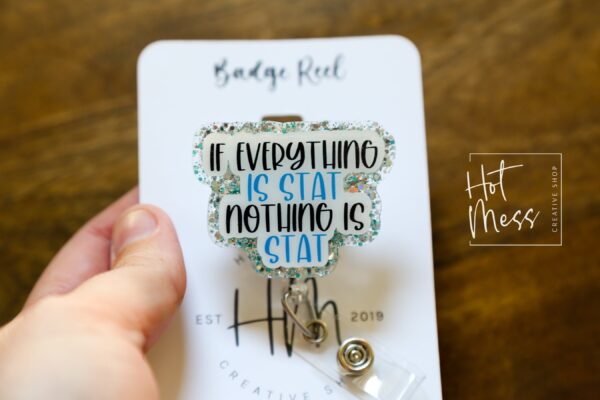 Badge Reel
IF EVERYTHING
IS STAT
NOTHING IS
STAT
EST Hm 2019
CREATIVE SHOP
Hot
Mess
CREATIVE SHOP